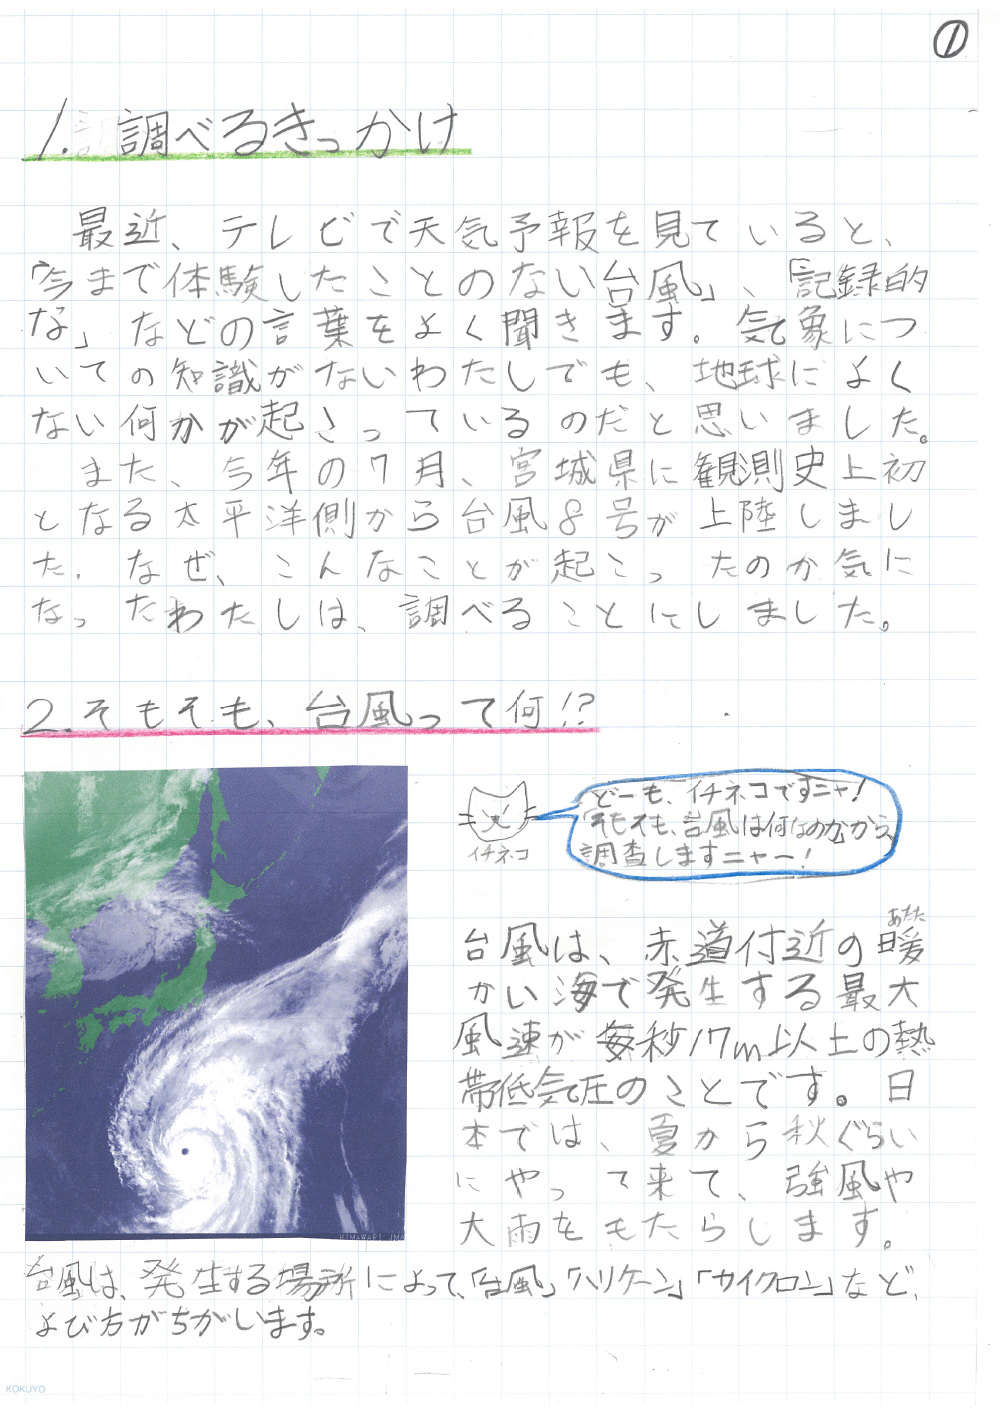 ①
1. 調べるきっかけ
最近、テレビで天気予報を見ていると、
「今まで体験したことのない台風」、「記録的
な」などの言葉をよく聞きます。気象につ
いての知識がないわたしでも、地球によく
ない何かが起こっているのだと思いました。
また、今年の7月、宮城県に観測史上初
となる太平洋側から台風8号が上陸しまし
た。なぜ、こんなことが起こったのか気に
なったわたしは、調べることにしました。
2.そもそも、台風って何!?
どーも、イチネコですニャ!
「そもそも、台風は何なのか」から、
調査しますニャー!
イチネコ
台風は、赤道付近の暖
あたた
かい海で発生する最大
風速が毎秒17m以上の熱
帯低気圧のことです。日
本では、夏から秋ぐらい
にやって来て、強風や
大雨をもたらします。
HIMAWARI JMA
台風は、発生する場所によって、「台風」「ハリケーン」「サイクロン」など、
よび方がちがいます。
KOKUYO